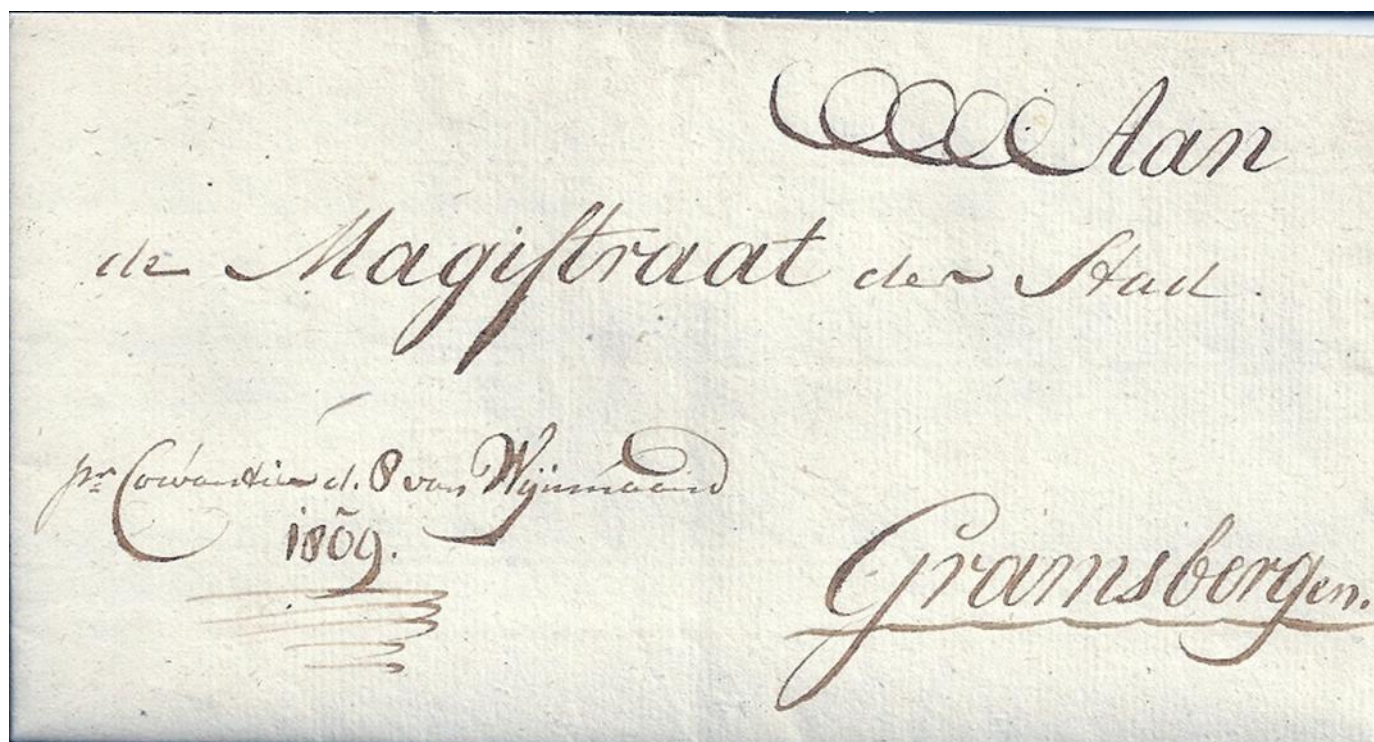 Aan
de Magistraat der Stad
pr d. 8 van Wijnmaand
1809.
Gramsbergen.